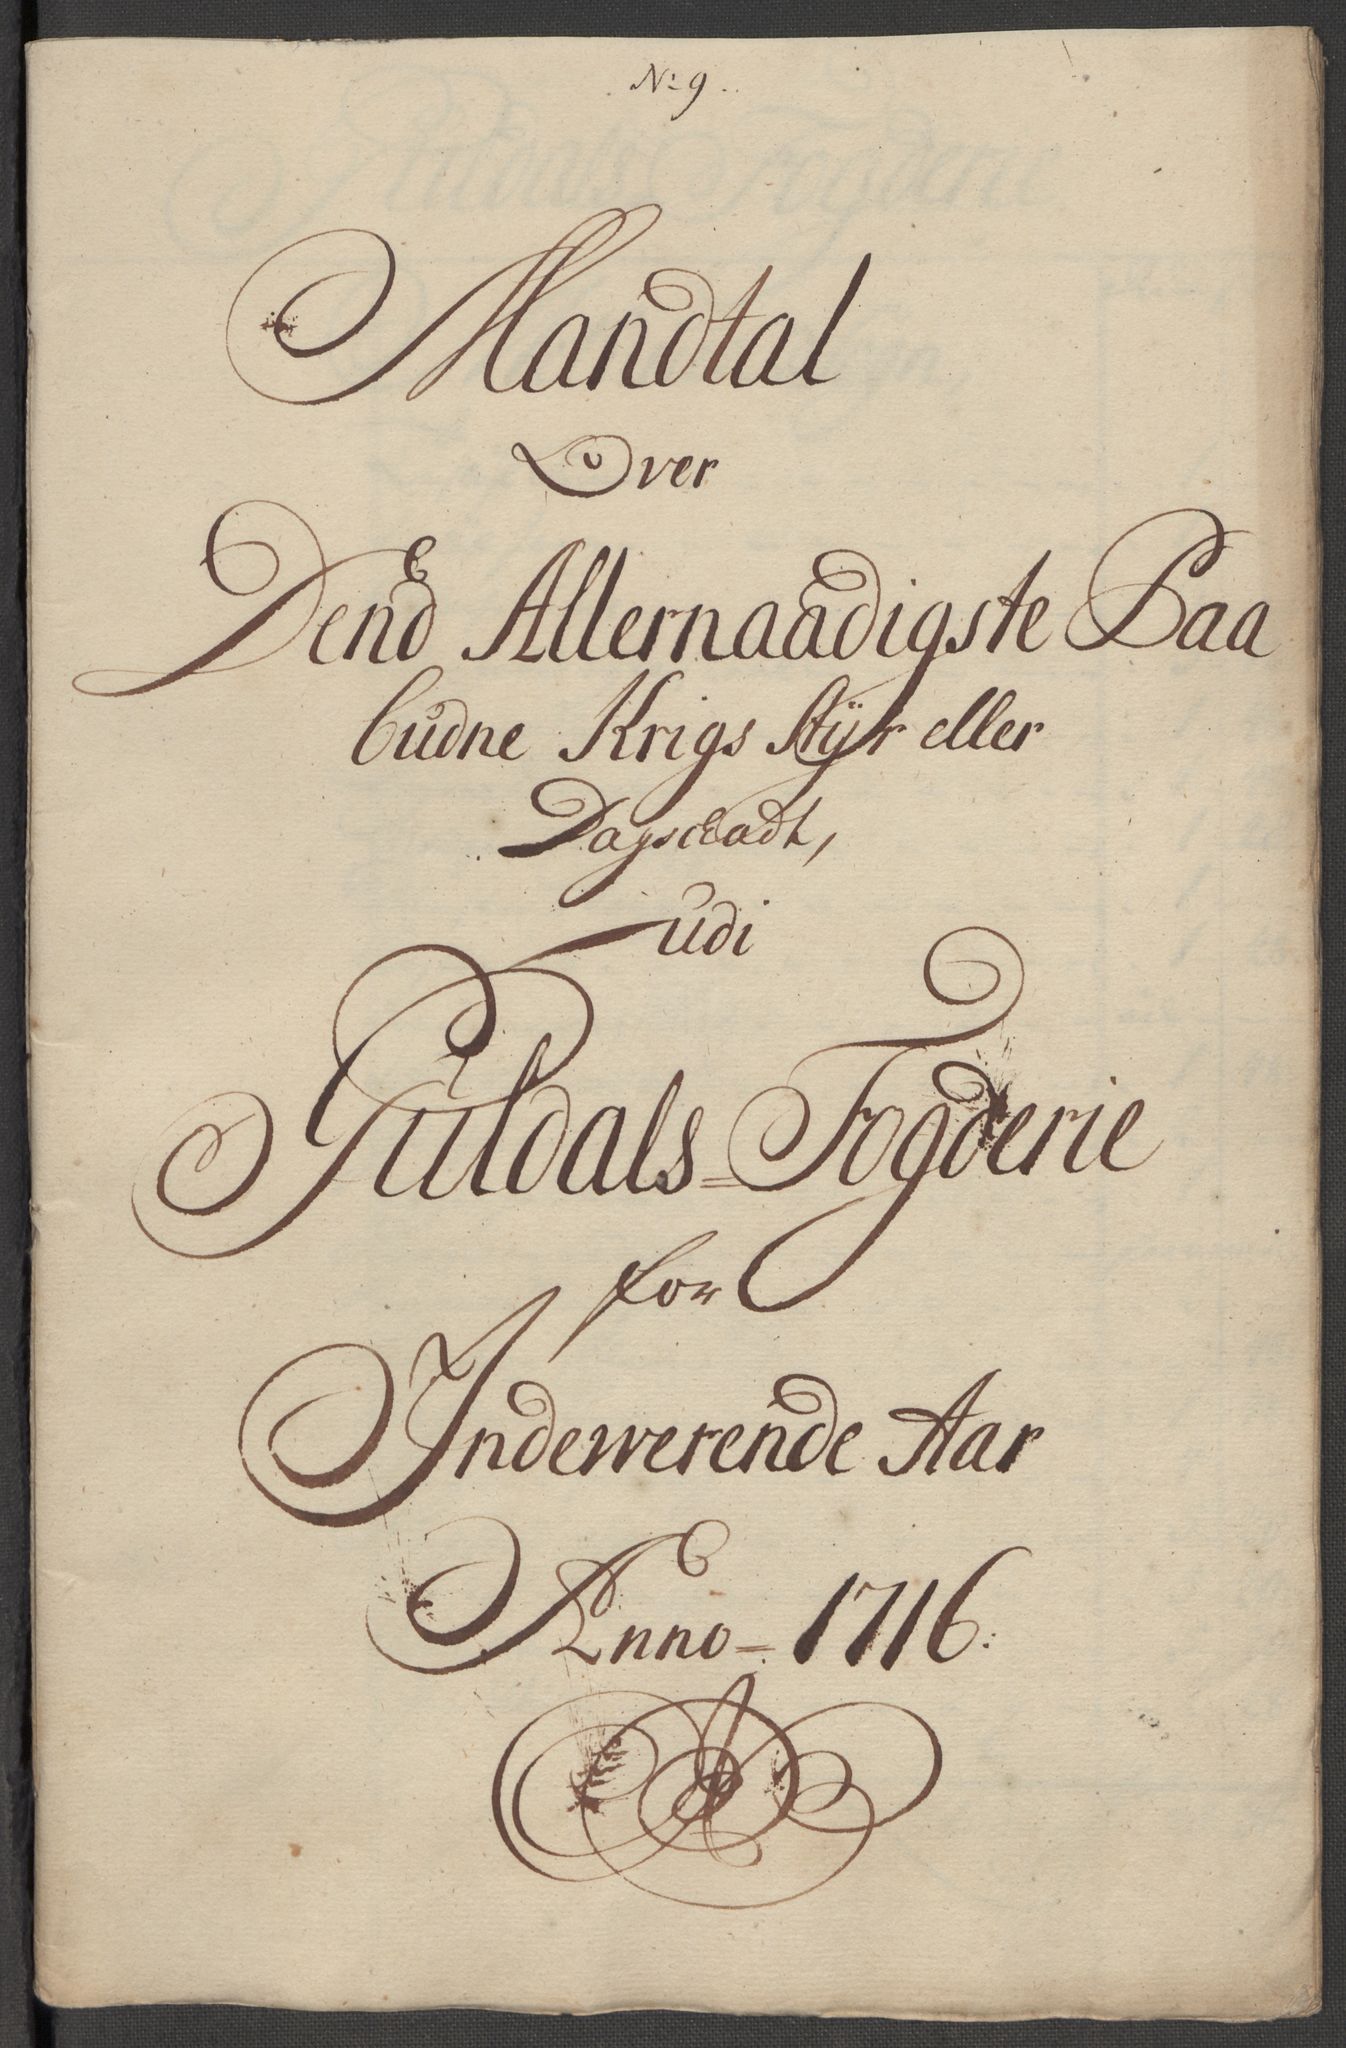 No 9.
Mandtal
Over
Dend Allernaadigste Paa
budne Krigs Styr eller
Dagskadt,
udi
Guldals= Fogderie
for
Indewerende Aar
Anno= 1716.